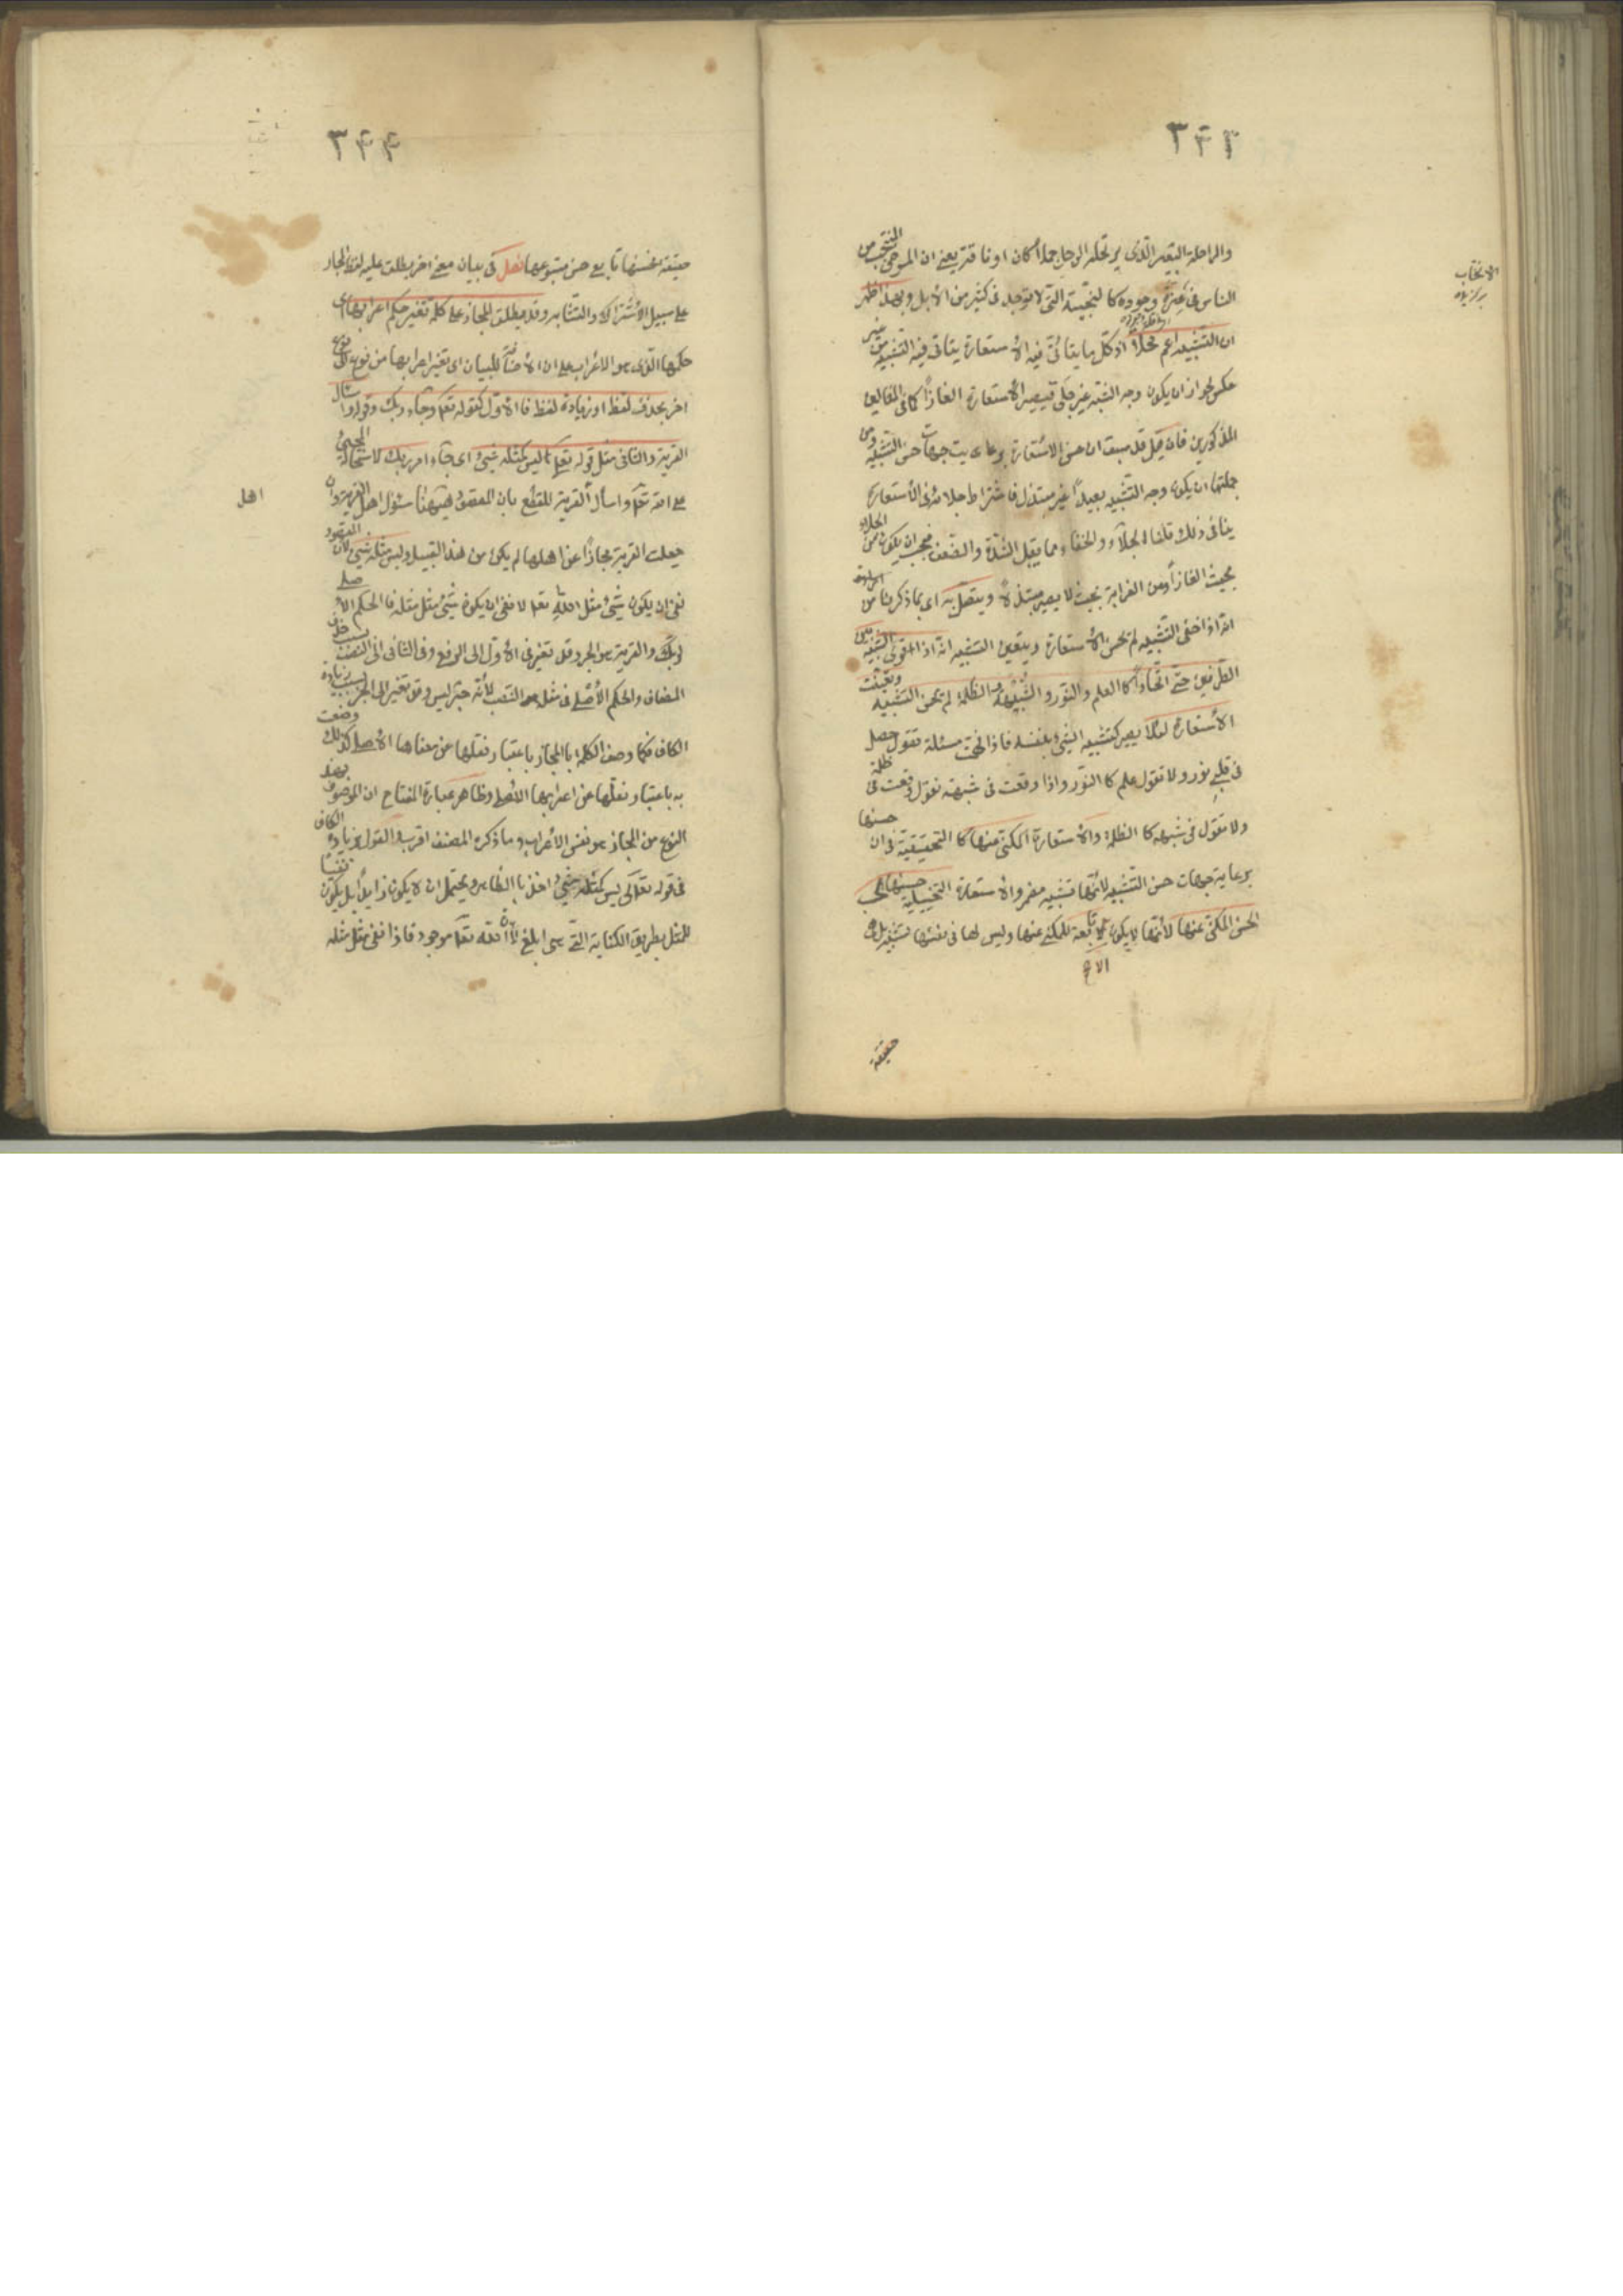 ٣٤٣
والراحلة البعير الذى يرتحله الرجل جملا كان او ناقة يعنى ان المرضى المنتجب من
الناس فى عزة وجوده كالنجيبة التى لا توجد فى كثير من الابل وبهذا ظهر
ان التشبيه اعم محلا اذ كل ما يتأتى فيه الاستعارة يتأتى فيه التشبيه من غير
عكس لجواز ان يكون وجه الشبه غير جلى فيصير الاستعارة الغازا كما فى المثالين
المذكورين فان قيل قد سبق ان حسن الاستعارة برعاية جهات حسن التشبيه ومن
جملتها ان يكون وجه التشبيه بعيدا غير مبتذل فاشتراط جلائه فى الاستعارة
ينافى ذلك قلنا الجلاء والخفاء مما يقبل الشدة والضعف فيجب ان يكون من الجلاء
بحيث الغازا ومن الغرابة بحيث لا يصير مبتذلا ويتصل به اى بما ذكرنا من
انه اذا خفى التشبيه لم يحسن الاستعارة ويتعين التشبيه انه اذا قوى الشبه بين
الطرفين حتى اتحدا كالعلم والنور والشبهة والظلمة لم يحسن التشبيه وتعينت
الاستعارة لئلا يصير كتشبيه الشئ بنفسه فاذا فهمت مسئلة تقول حصل
فى قلبى نور ولا تقول علم كالنور واذا وقعت فى شبهة تقول وقعت فى ظلمة
ولا تقول فى شبهة كالظلمة والاستعارة المكنى عنها كالتحقيقية فى ان حسنها
برعاية جهات حسن التشبيه لانها تشبيه مضمر والاستعارة التخييلية حسنها بحسب
حسن المكنى عنها لانها لا يكون الا تابعة للمكنى عنها وليس لها فى نفسها تشبيه بل هى
حقيقة
الانتخاب
برگزيدن
٣٤٤
حقيقة فحسنها تابع حسن متبوعها فصل فى بيان معنى اخر يطلق عليه لفظ المجاز
على سبيل الاشتراك والتشابه وقد يطلق المجاز على كلمة تغير حكم اعرابها اى
حكمها الذى هو الاعراب على ان الاضافة للبيان اى تغير اعرابها من نوع الى نوع
اخر بحذف لفظ او زيادة لفظ فالاول كقوله تعالى وجاء ربك وقوله واسأل
القرية والثانى مثل قوله تعالى ليس كمثله شئ اى جاء امر ربك لاستحالة المجئ
على الله تعالى واسأل القرية للقطع بان المقصود ههنا سؤال اهل القرية وان
جعلت القرية مجازا عن اهلها لم يكن من هذا القبيل وليس مثله شئ لان المقصود
نفى ان يكون شئ مثل الله تعالى لا نفى ان يكون شئ مثل مثله فالحكم الاصلى
لربك والقرية هو الجر وقد تغير فى الاول الى الرفع وفى الثانى الى النصب بسبب حذف
المضاف والحكم الاصلى فى مثله هو النصب لانه خبر ليس وقد تغير الى الجر بسبب زيادة
الكاف فكما وصف الكلمة بالمجاز باعتبار نقلها عن معناها الاصلى كذلك وصفت
به باعتبار نقلها عن اعرابها الاصلى وظاهر عبارة المفتاح ان الموصوف بهذا
النوع من المجاز هو نفس الاعراب وما ذكره المصنف اقرب والقول بزيادة الكاف
فى قوله تعالى ليس كمثله شئ اخذ بالظاهر ويحتمل ان لا يكون زايدا بل يكون نفيا
للمثل بطريق الكناية التى هى ابلغ لان الله تعالى موجود فاذا نفى مثل مثله
اهل